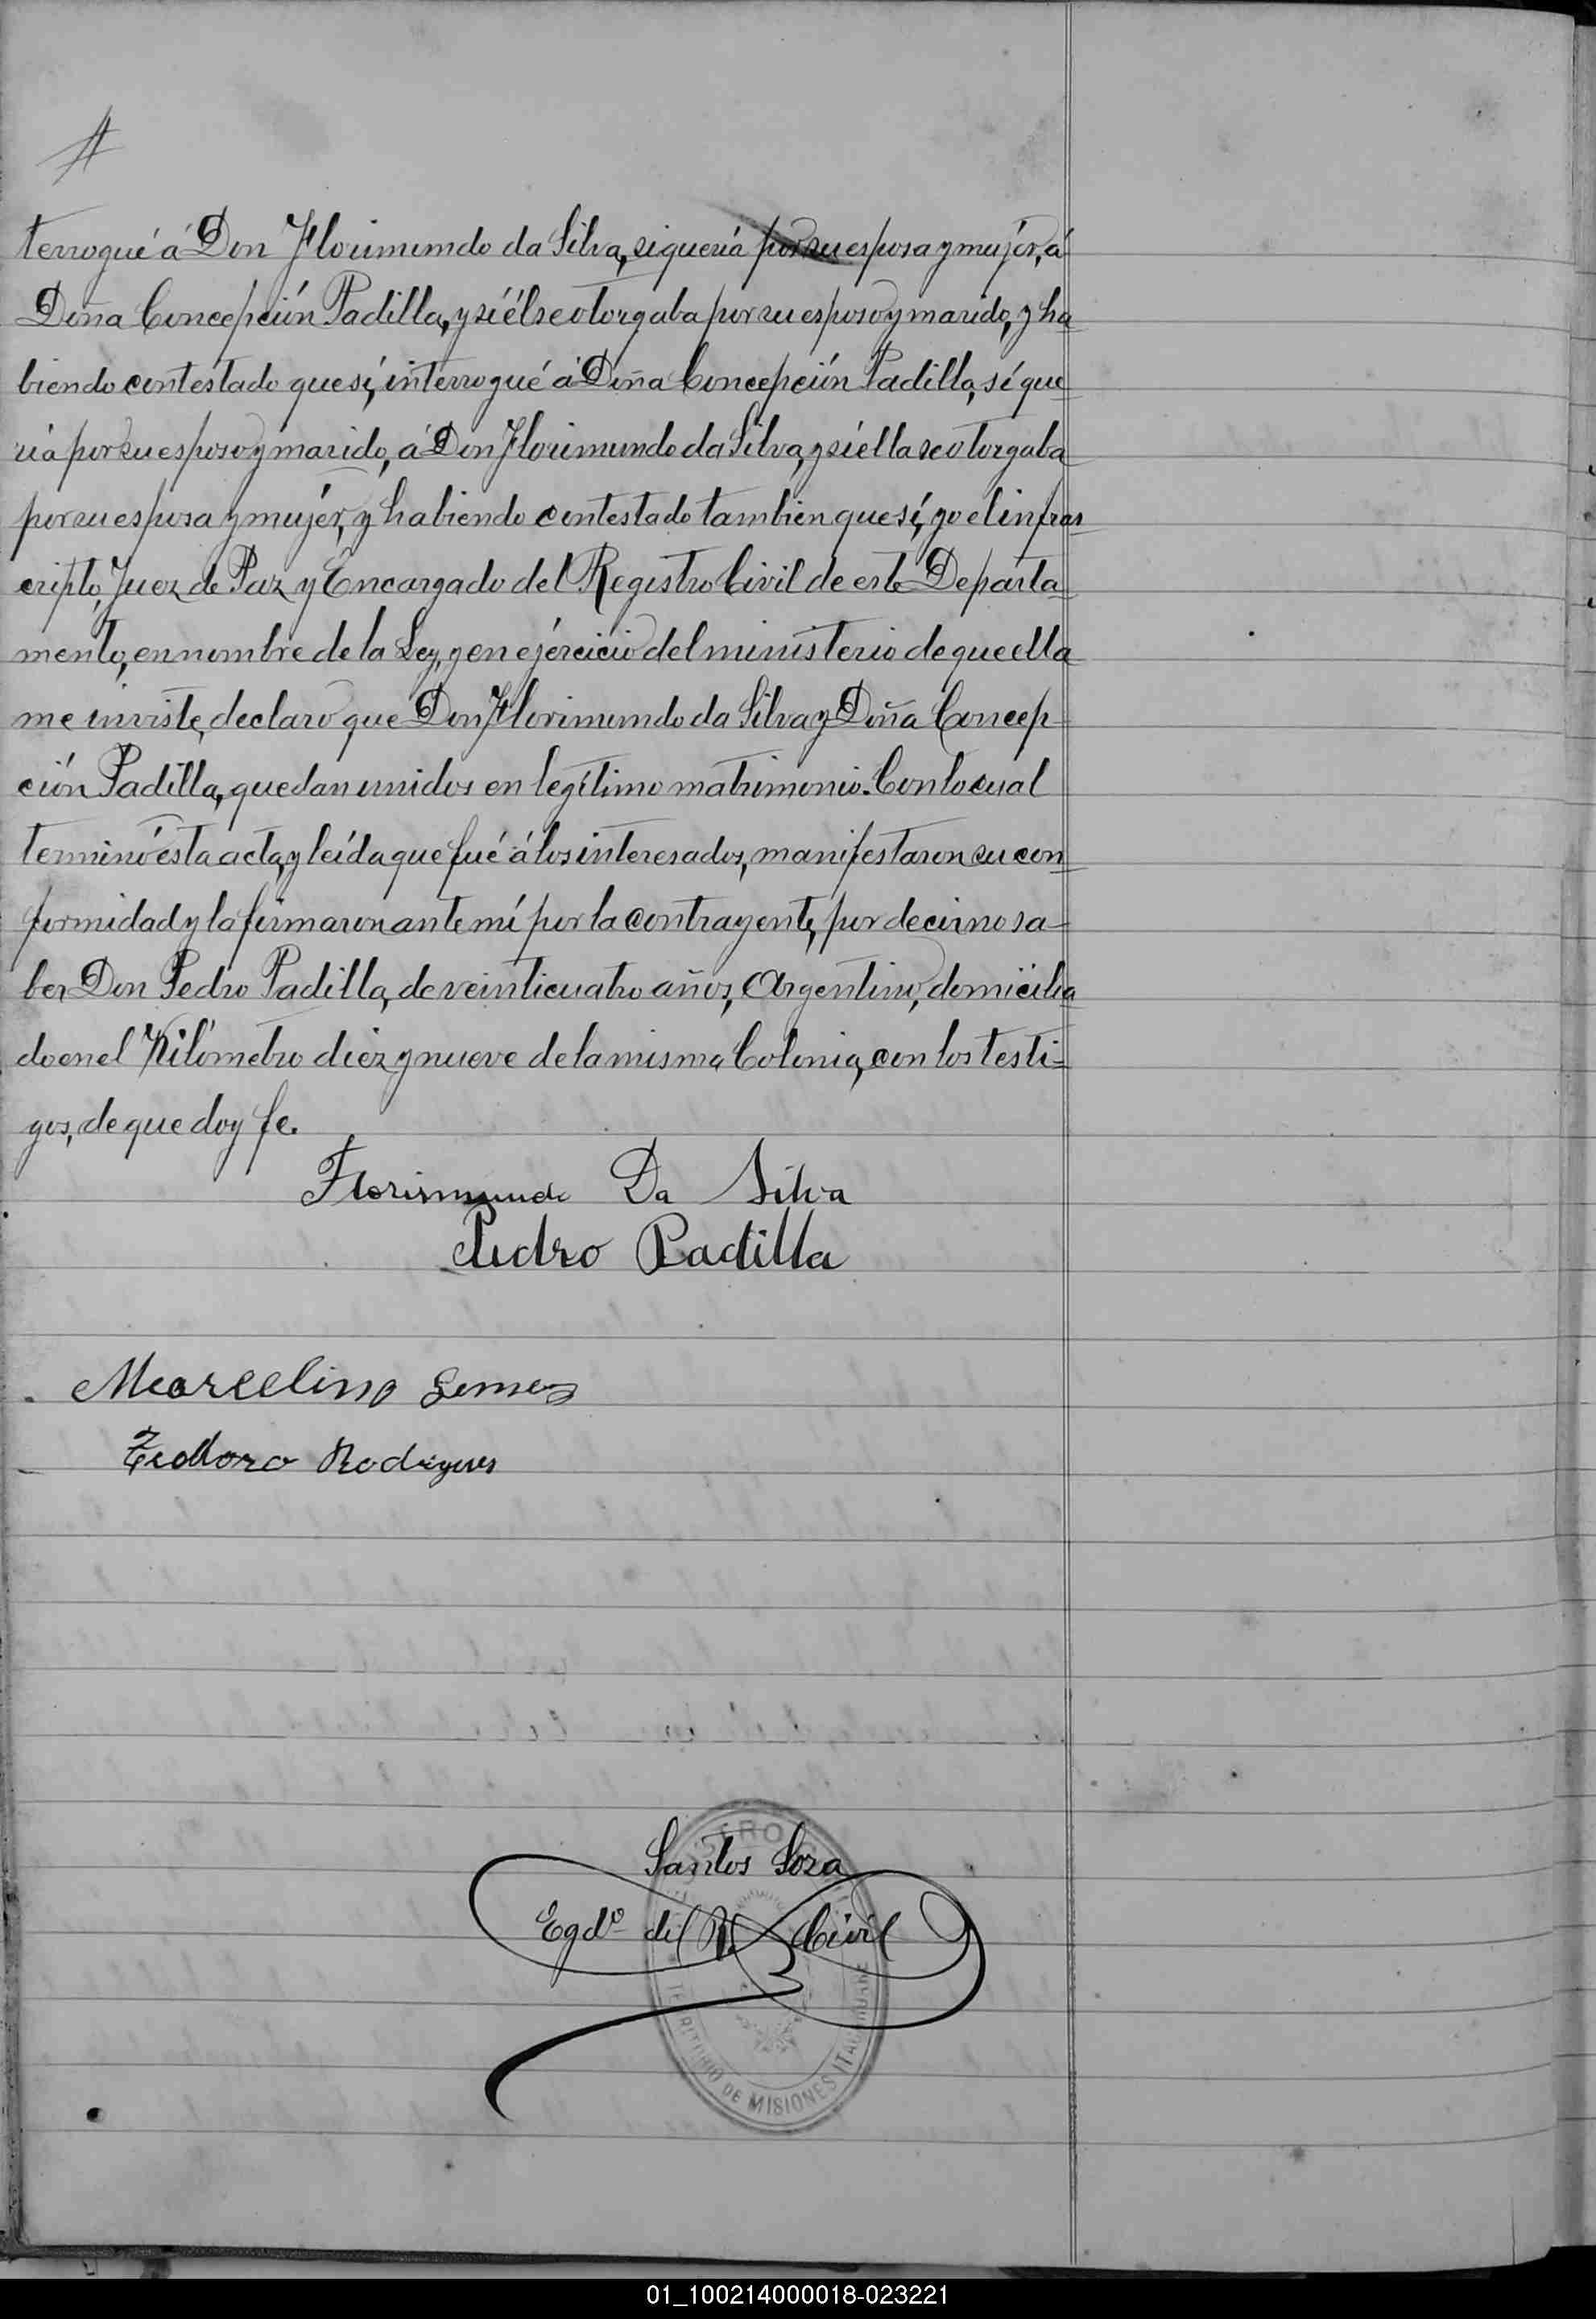 terrogué á Don Florimundo da Silva, si quería por su esposa y mujér, á
Doña Concepción Padilla, y sí él se otorgaba por su esposo y marido, y ha
biendo contestado que sí, interrogué á Doña Concepción Padilla, sí que
ría por su esposo y marido, á Don Florimundo da Silva, y sí ella se otorgaba
por su esposa y mujér, y habiendo contestado tambien que sí, yo el infras
cripto, Juez de Paz y Encargado del Registro Civil de este Departa
mento, en nombre de la Ley, y en ejércicio del ministerio de que ella
me inviste, declaro que Don Florimundo da Silva y Doña Concep-
ción Padilla, quedan unidos en legítimo matrimonio. Con lo cual
terminó ésta acta, y leída que fué á los interesados, manifestaron su con
formidad y la firmaron ante mí por la contrayente, por decir no sa-
ber Don Pedro Padilla, de veinticuatro años, Argentino, domicilia
do en el Kilómetro diez y nueve de la misma Colonia, con los testi=
gos, de que doy fe.
Florismundo Da Silva
Pedro Padilla
Marcelino Gomez
Teodoro Rodrigues
Santos Soza
Egdo. del R. Civil
TERRITORIO DE MISIONES
01_100214000018-023221